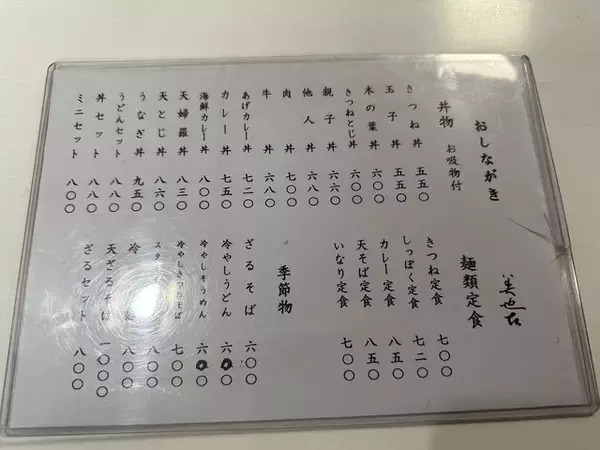 おしながき
丼物 お吸物付
きつね丼 五五〇
玉子丼 五五〇
木の葉丼 六〇〇
きつねとじ丼 六〇〇
親子丼 六六〇
他人丼 六八〇
肉丼 七〇〇
牛丼 六八〇
あげカレー丼 七二〇
カレー丼 七五〇
海鮮カレー丼 八〇〇
天婦羅丼 八三〇
天とじ丼 八六〇
うなぎ丼 九五〇
うどんセット 八八〇
丼セット 八八〇
ミニセット 八〇〇
美也古
麺類定食
きつね定食 七〇〇
しっぽく定食 七二〇
カレー定食 八五〇
天そば定食 八五〇
いなり定食 七〇〇
季節物
ざるそば 六〇〇
冷やしうどん 六〇〇
冷やしそうめん 六〇〇
七〇〇
八〇〇
八〇〇
天ざるそば 一〇〇〇
ざるセット 八〇〇